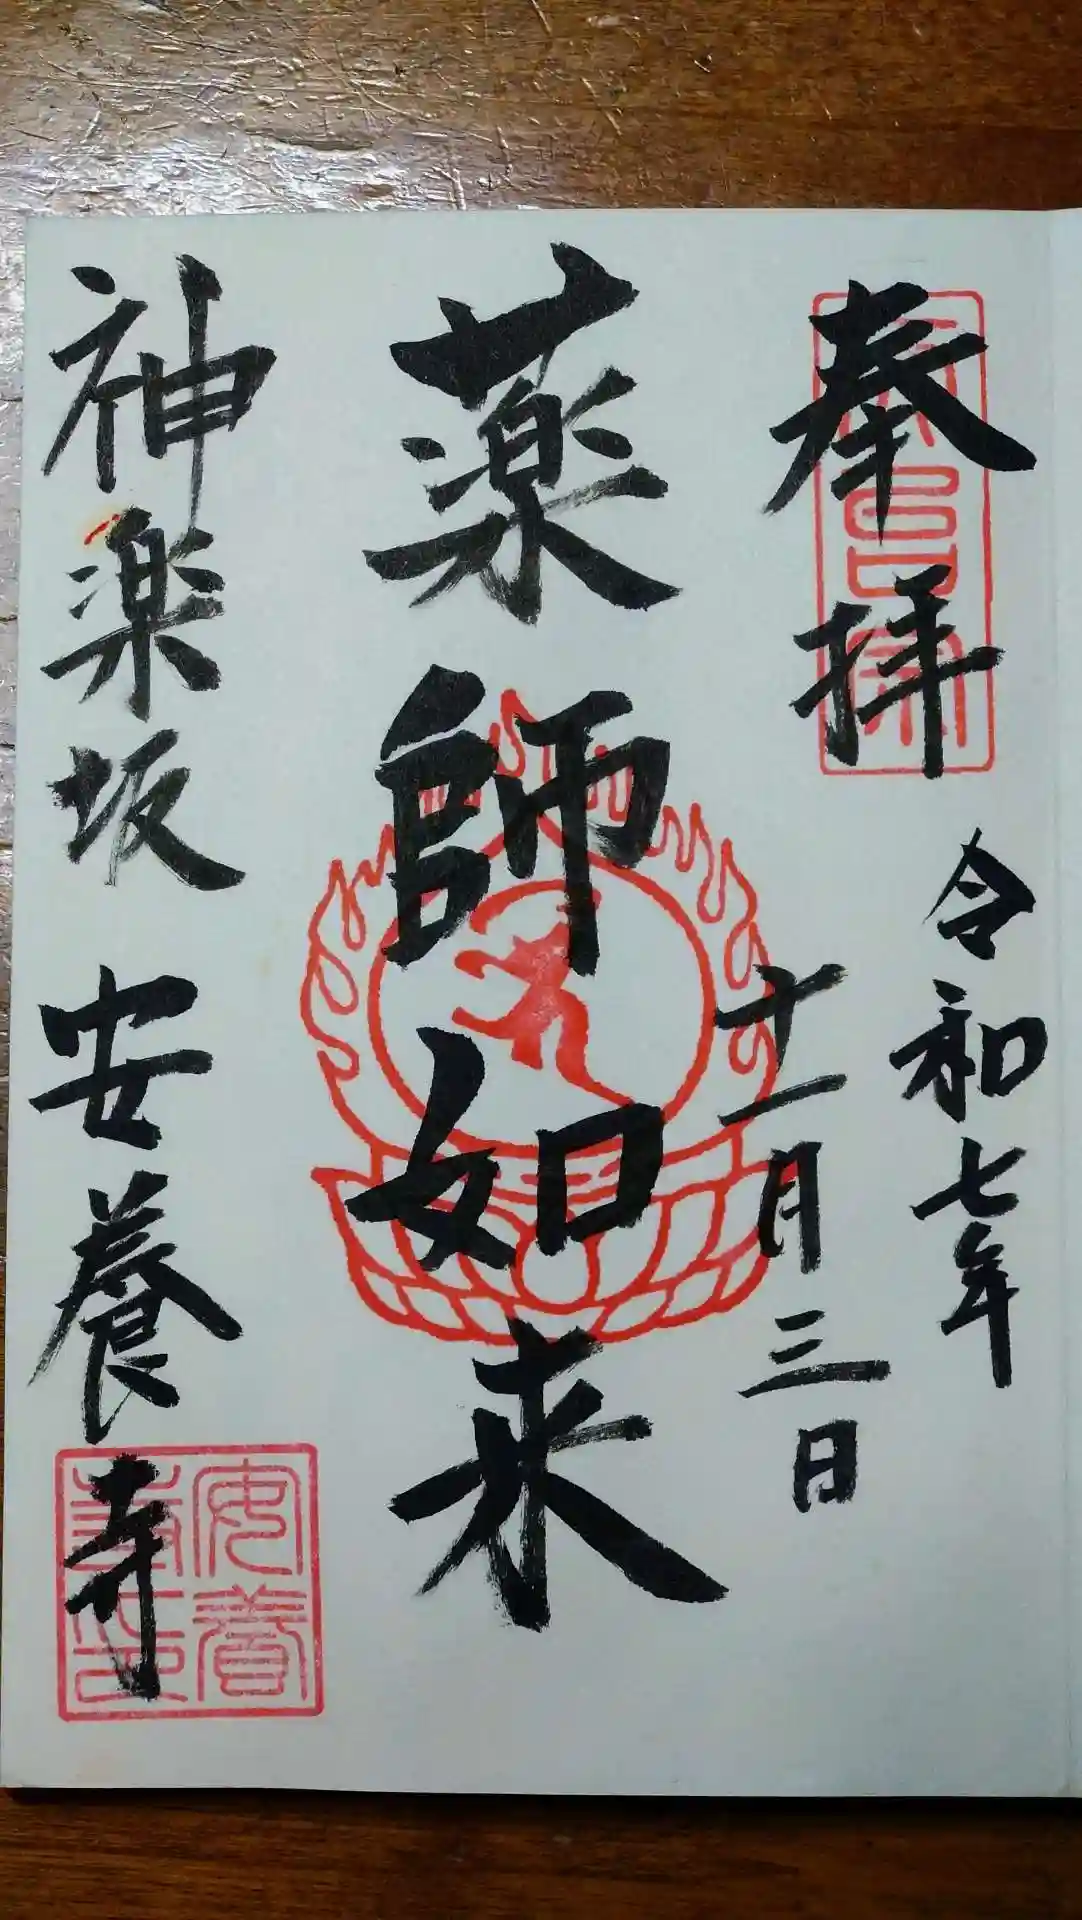 奉拝
天台宗
令和七年
十一月三日
薬師如来
神楽坂 安養寺
安養
寺印